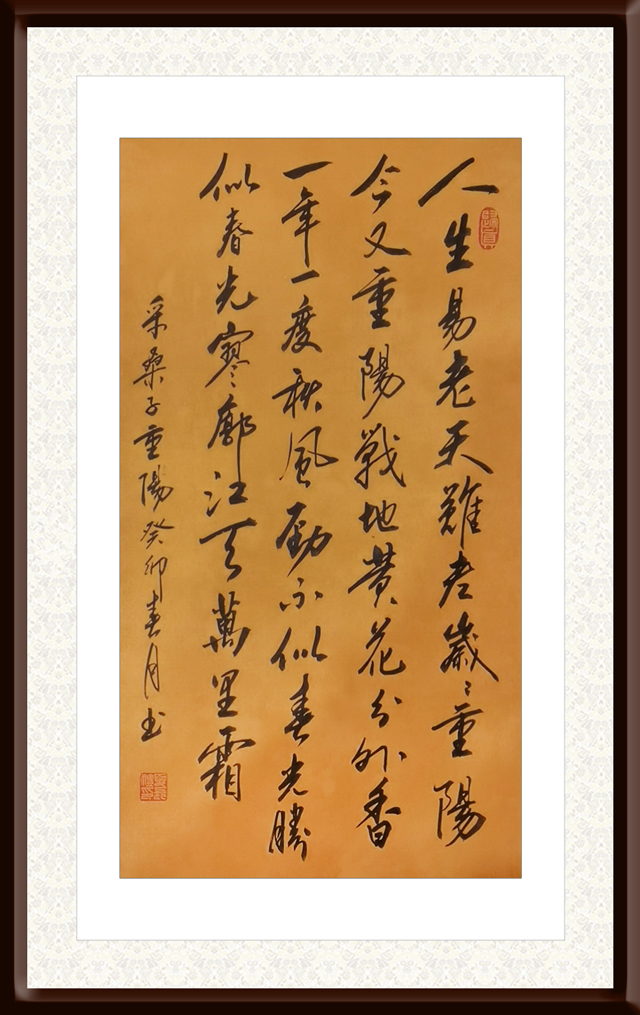 人生易老天難老歲々重陽
今又重陽戰地黄花分外香
一年一度秋風勁不似春光勝
似春光寥廓江天萬里霜
采桑子重陽癸卯春月书